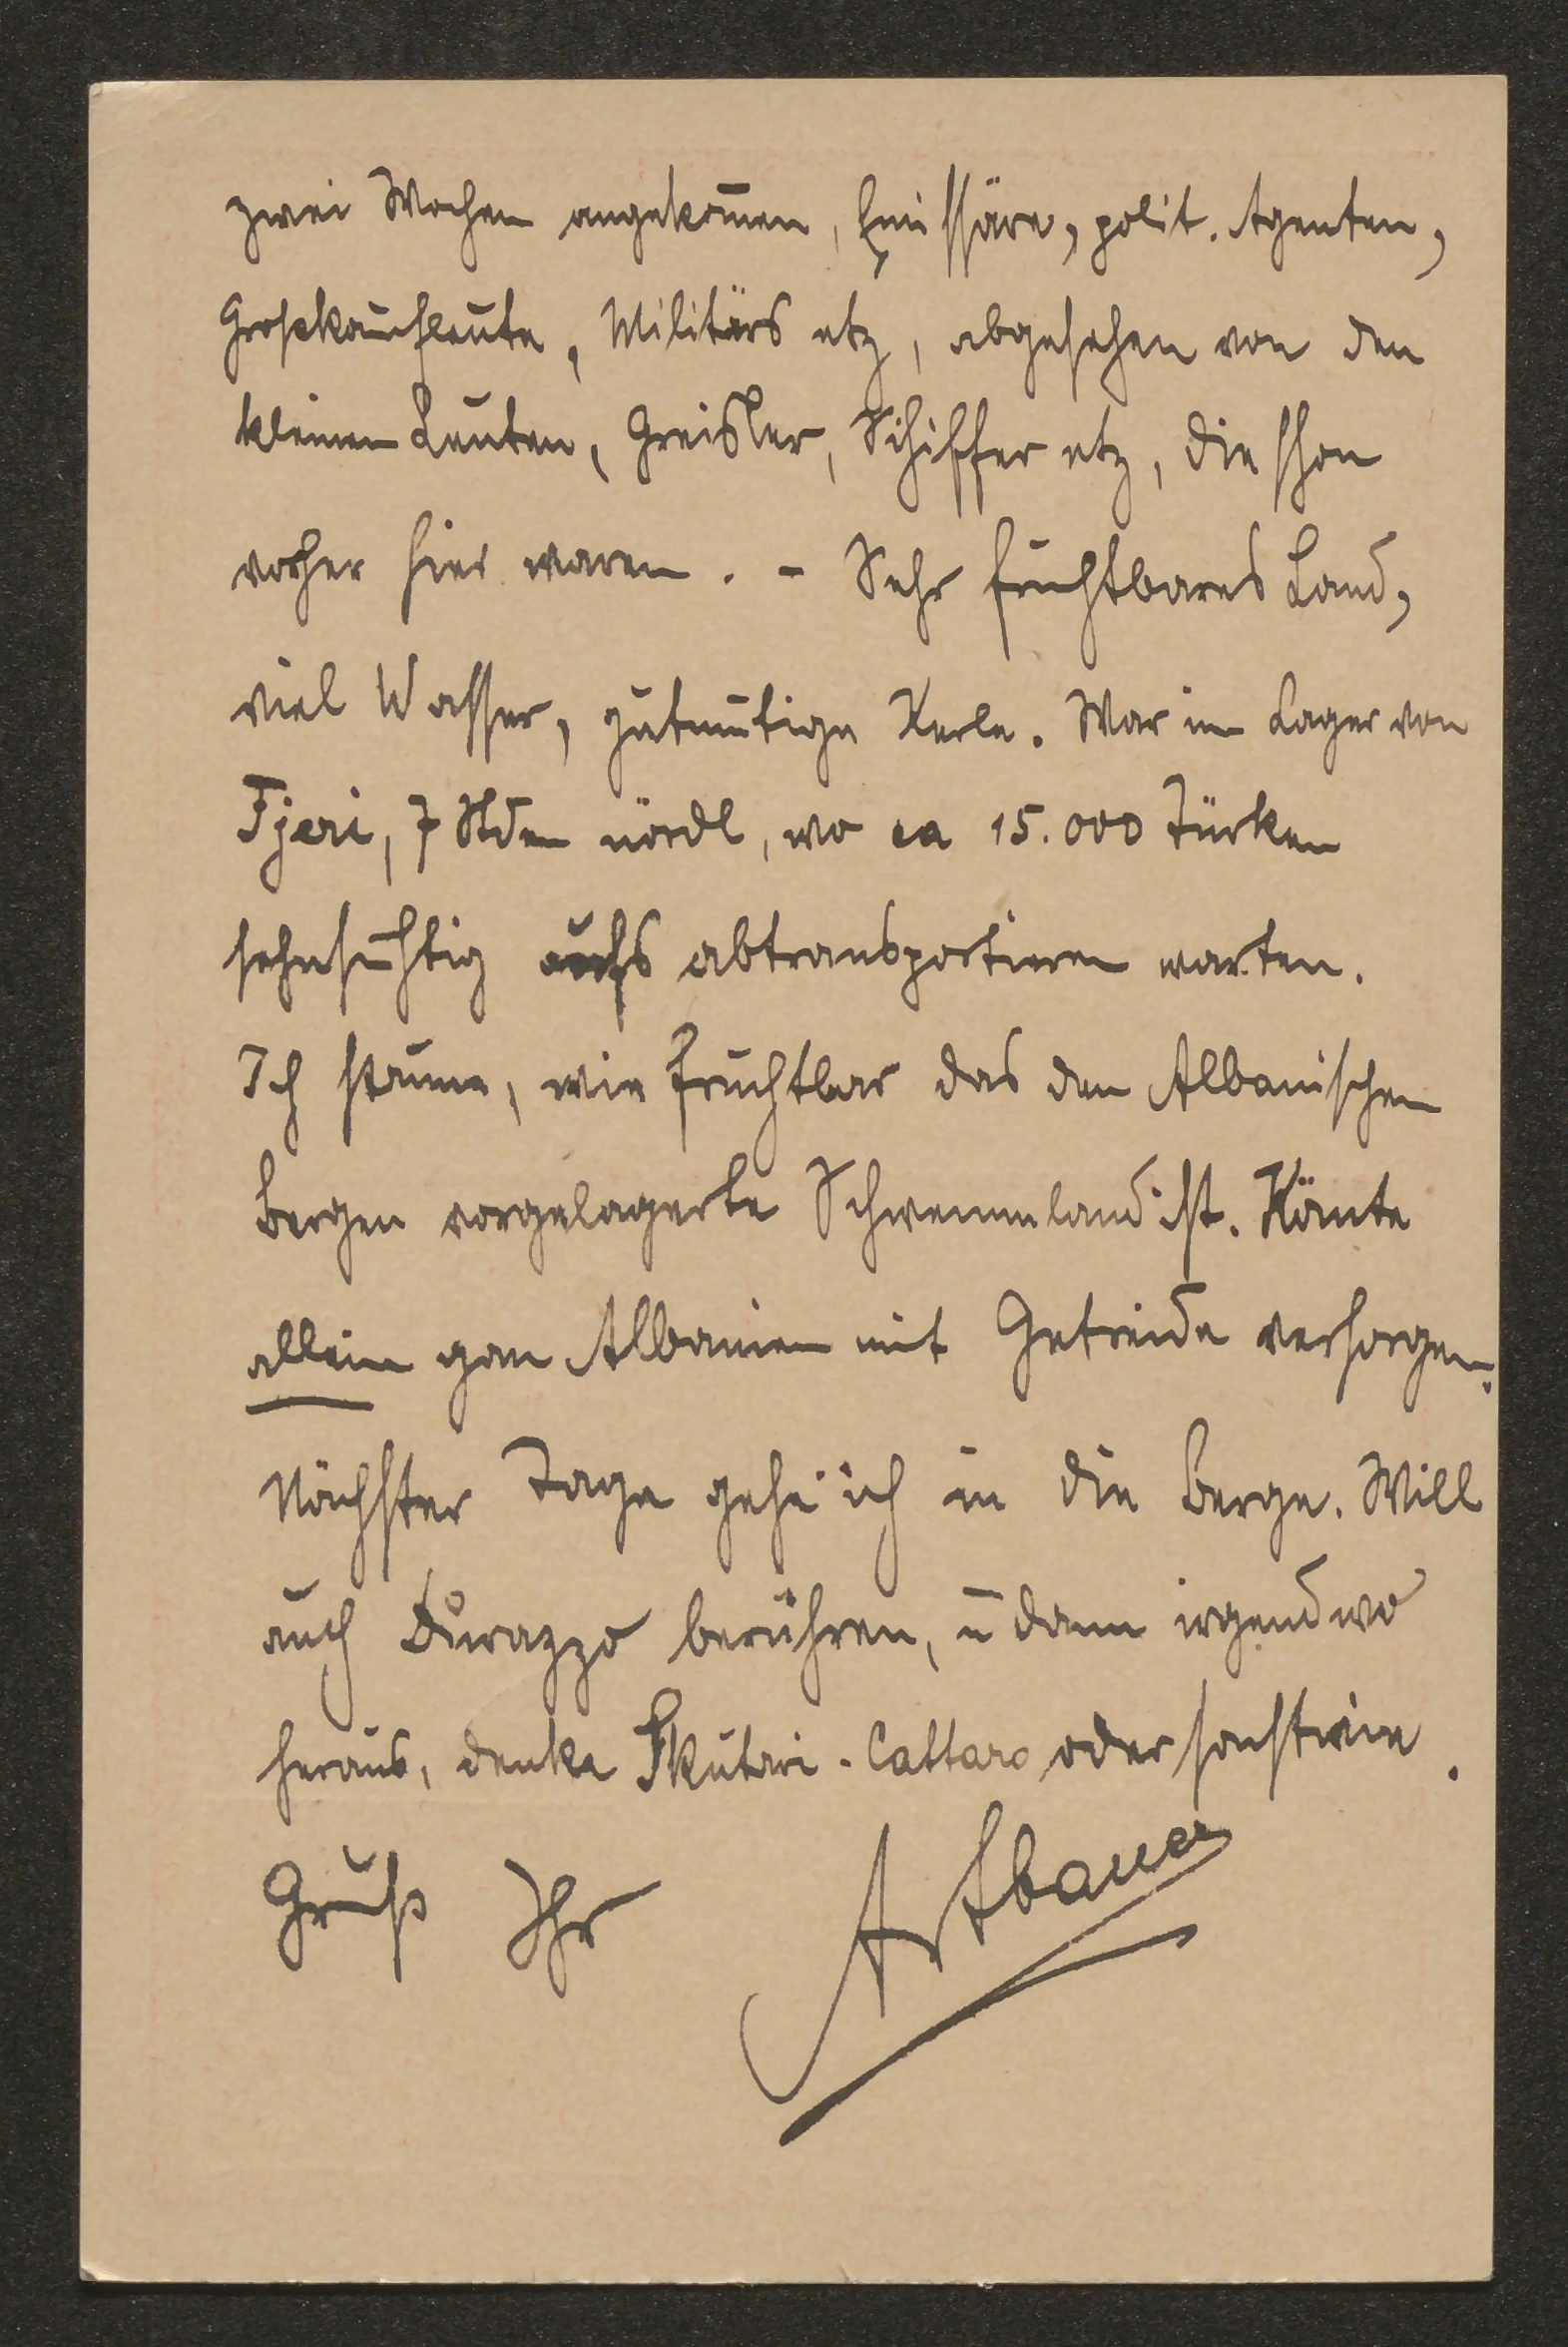 zwei Wochen angekom̄en, Emissäre, polit. Agenten,
Großkaufleute, Militärs etz, abgesehen von den
kleinen Leuten, Greisler, Schiffer etz, die schon
vorher hier waren. - Sehr fruchtbares Land,
viel Wasser, gutmütige Kerle. War im Lager von
Fjeri, 7 Stden nördl, wo ca 15.000 Türken
sehnsüchtig aufs abtransportieren warten.
Ich staune, wie fruchtbar das den Albanischen
Bergen vorgelagerte Schwemmland ist. Kön̄te
allein Albanien mit Getreide versorgen.
Nächster Tage gehe ich in die Berge. Will
auch Durazzo berühren, u dann irgendwo
heraus, denke Skutari - Cattaro oder sonstwie.
Gruß Ihr Artbauer